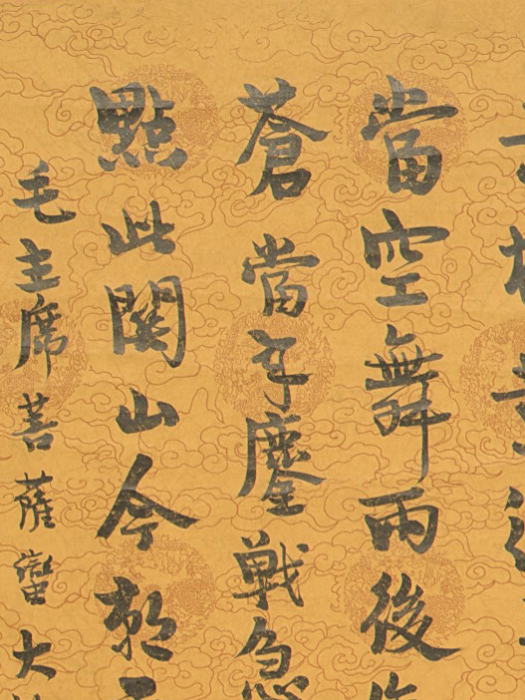 當空舞雨後
蒼當年鏖戦急
點此關山今朝
毛主席菩薩蠻大